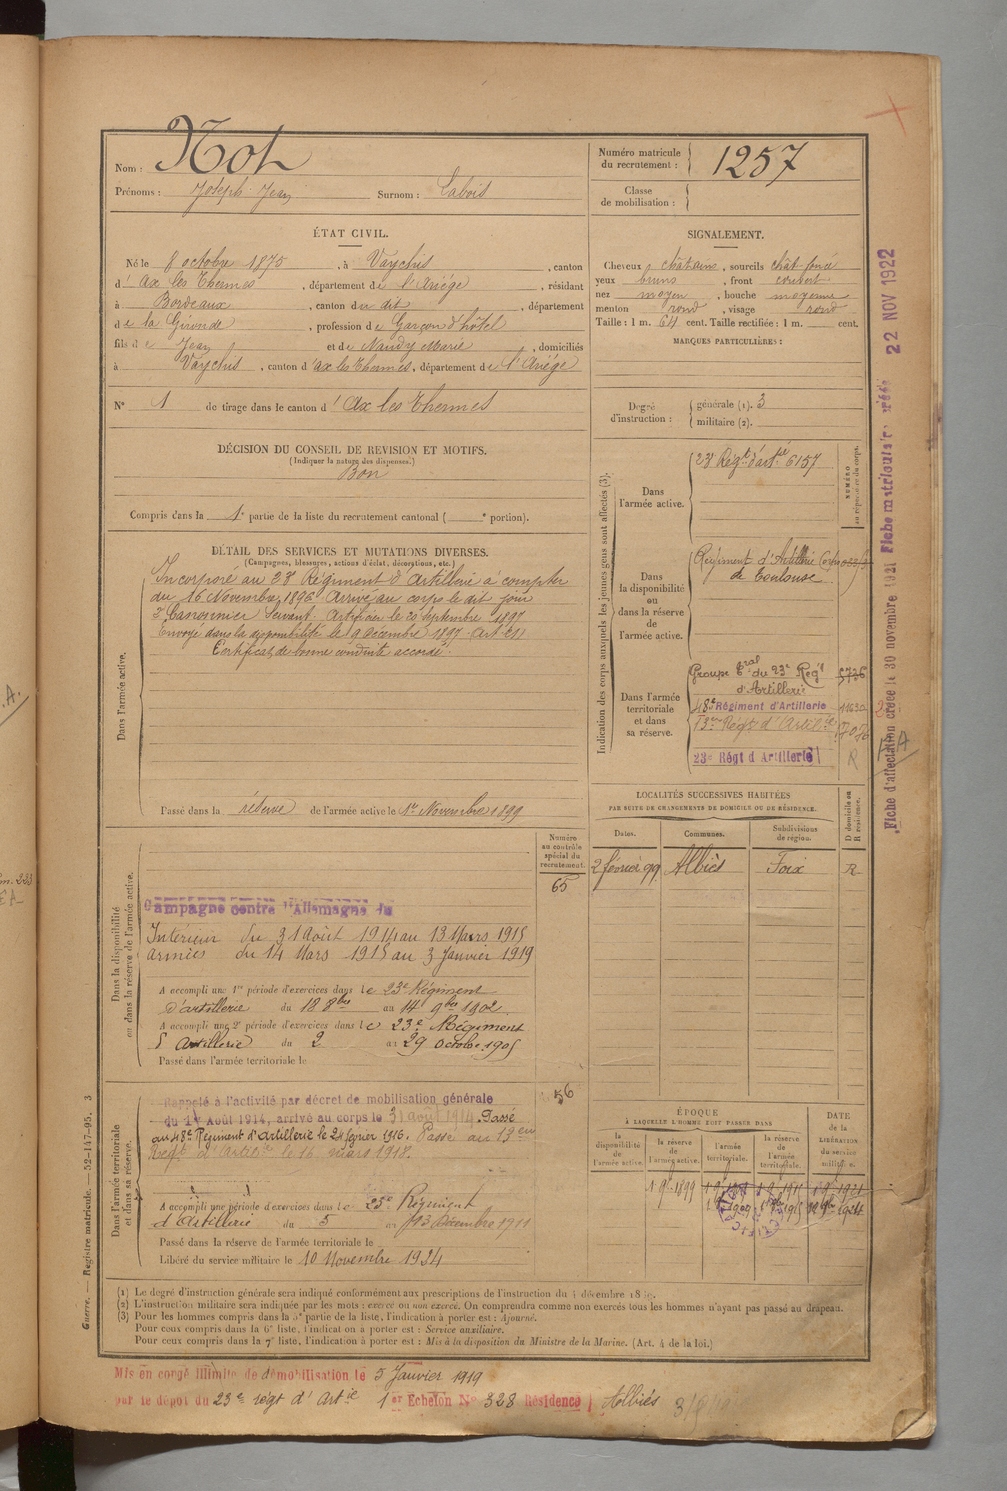 Nom : Not
Prénoms : Joseph Jean Surnom : Labois
Numéro matricule du recrutement : 1257
Classe de mobilisation :
ÉTAT CIVIL.
Né le 8 octobre 1875, à Vaychis, canton
d' Ax les Thermes, département de l'Ariége, résidant
à Bordeaux, canton du dit, département
de la Gironde, profession de Garçon d'hôtel
fils de Jean et de Naudy Marie, domiciliés
à Vaychis, canton d'ax les Thermes, département de l'Ariége
N° 1 de tirage dans le canton d' Ax les Thermes
SIGNALEMENT.
Cheveux châtains, sourcils chât-foncé
yeux bruns, front couvert
nez moyen, bouche moyenne
menton rond, visage rond
Taille : 1 m. 64 cent. Taille rectifiée : 1 m. cent.
MARQUES PARTICULIÈRES :
Degré d'instruction : générale (1). 3
militaire (2).
DÉCISION DU CONSEIL DE REVISION ET MOTIFS.
(Indiquer la nature des dispenses.)
Bon
Compris dans la 1e partie de la liste du recrutement cantonal ( e portion).
DÉTAIL DES SERVICES ET MUTATIONS DIVERSES.
(Campagnes, blessures, actions d'éclat, décorations, etc.)
Dans l'armée active.
Incorporé au 23e Régiment d'Artillerie à compter
du 16 Novembre 1896. Arrivé au corps le dit jour
2e Canonnier Servant. Artificier le 20 Septembre 1897
Envoyé dans la disponibilité le 9 décembre 1897. Art 21
Certificat de bonne conduite accordé.
Passé dans la réserve de l'armée active le 1er Novembre 1899
Indication des corps auxquels les jeunes gens sont affectés (3).
NUMÉRO au répertoire du corps.
Dans l'armée active.
23e Régt d'artie 6157
Dans la disponibilité ou dans la réserve de l'armée active.
Régiment d'Artillerie
de Toulouse
Dans l'armée territoriale et dans sa réserve.
Groupe tral du 23e Régt
d'Artillerie
48e Régiment d'Artillerie
13me Régt d'Artillie
23e Régt d'Artillerie R
LOCALITÉS SUCCESSIVES HABITÉES
PAR SUITE DE CHANGEMENTS DE DOMICILE OU DE RÉSIDENCE.
D domicile ou R résidence.
Dates. Communes. Subdivisions de région.
2 février 99 Albiès Foix R
Dans la disponibilité ou dans la réserve de l'armée active.
Numéro au contrôle spécial du recrutement.
65
Campagne contre l'Allemagne du
Intérieur du 31 août 1914 au 13 Mars 1915
armées du 14 Mars 1915 au 3 Janvier 1919
A accompli une 1re période d'exercices dans le 23e Régiment
d'artillerie du 18 8bre au 14 9bre 1902.
A accompli une 2e période d'exercices dans le 23e Régiment
d'Artillerie du 2 au 29 octobre 1905
Passé dans l'armée territoriale le
Dans l'armée territoriale et dans sa réserve.
56
Rappelé à l'activité par décret de mobilisation générale
du 1er Août 1914, arrivé au corps le 31 août 1914. Passé
au 48e Régiment d'Artillerie le 24 février 1916. Passé au 13em
Régt d'Artillie le 16 mars 1918.
A accompli une période d'exercices dans le 23e Régiment
d'Artillerie du 5 au 13 Décembre 1911
Passé dans la réserve de l'armée territoriale le
Libéré du service militaire le 10 Novembre 1924
ÉPOQUE
À LAQUELLE L'HOMME DOIT PASSER DANS
DATE de la LIBÉRATION du service militaire.
la disponibilité de l'armée active. la réserve de l'armée active. l'armée territoriale. la réserve de l'armée territoriale.
(1) Le degré d'instruction générale sera indiqué conformément aux prescriptions de l'instruction du 4 décembre 1889.
(2) L'instruction militaire sera indiquée par les mots : exercé ou non exercé. On comprendra comme non exercés tous les hommes n'ayant pas passé au drapeau.
(3) Pour les hommes compris dans la 5e partie de la liste, l'indication à porter est : Ajourné.
Pour ceux compris dans la 6e liste, l'indication à porter est : Service auxiliaire.
Pour ceux compris dans la 7e liste, l'indication à porter est : Mis à la disposition du Ministre de la Marine. (Art. 4 de la loi.)
Mis en congé illimité de démobilisation le 5 Janvier 1919
par le dépôt du 23e régt d'Artie 1er Echelon N° 328 Résidence Albiès
Guerre. — Registre matricule. — 52-147-95. 3
Fiche d'affectation créée le 30 novembre 1921 Fiche matriculaire créée 22 NOV 1922